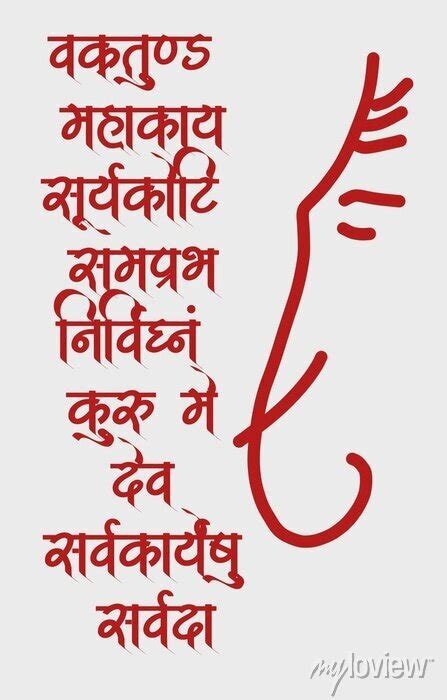 वकतुण्ड
महाकाय
सूर्यकोटि
समप्रभ
निर्विघ्नं
कुरु मे
देव
सर्वकार्येषु
सर्वदा
myloview